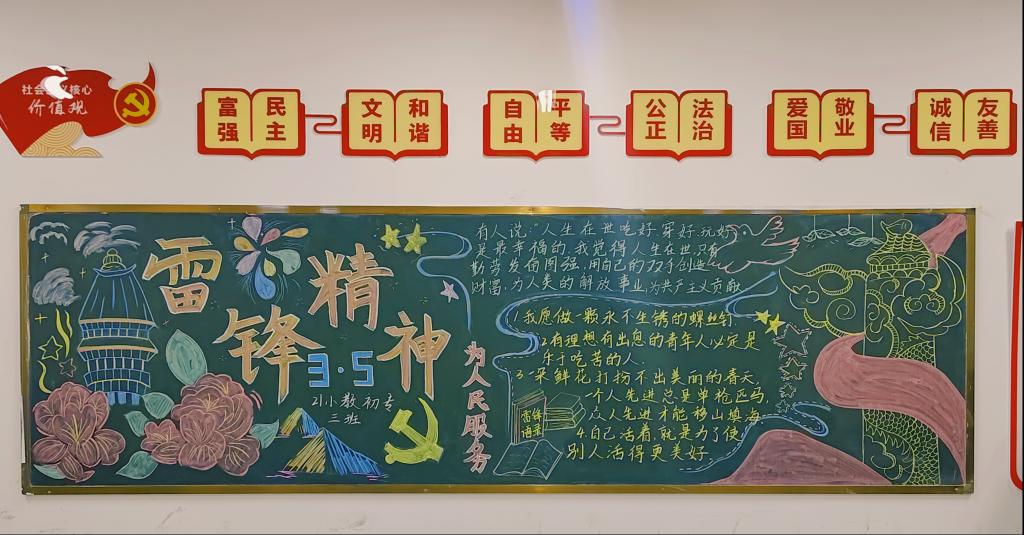 社会主义核心
价值观
富强 民主
文明 和谐
自由 平等
公正 法治
爱国 敬业
诚信 友善
雷锋精神
3·5
21小教初专
三班
为人民服务
有人说:“人生在世吃好穿好玩好
是最幸福的,我觉得人生在世只有
勤劳发奋图强,用自己的双手创造
财富,为人类的解放事业,为共产主义贡献
1.我愿做一颗永不生锈的螺丝钉.
2.有理想有出息的青年人必定是
乐于吃苦的人.
3.一朵鲜花打扮不出美丽的春天,
一个人先进总是单枪匹马,
众人先进才能移山填海
4.自己活着,就是为了使
别人活得更美好
雷锋
语录